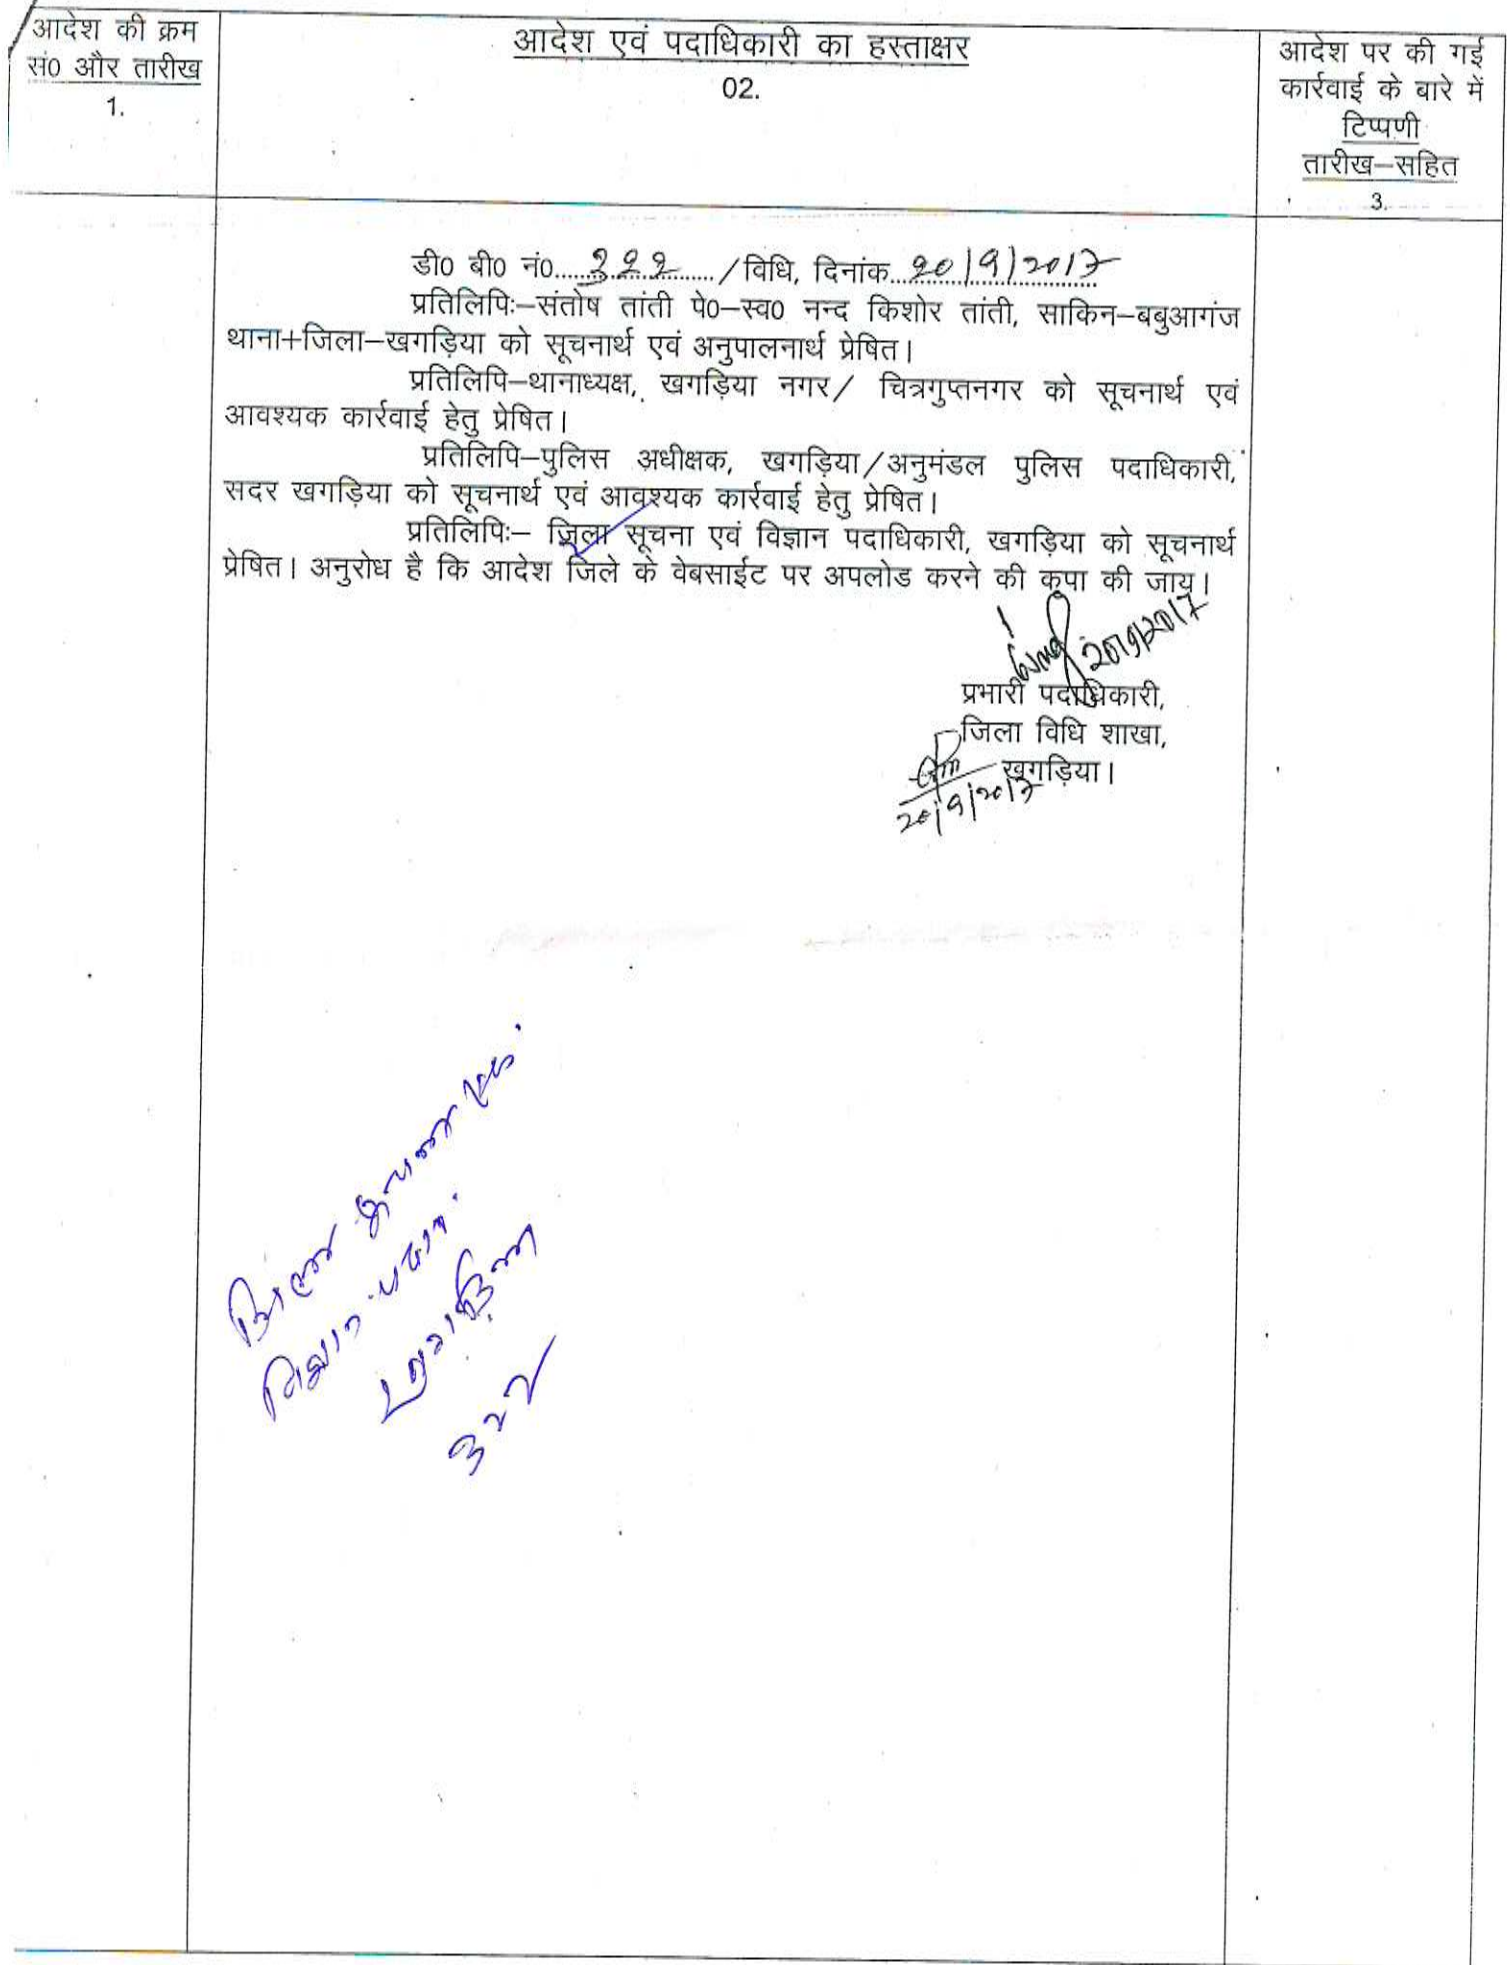 आदेश की क्रम
सं0 और तारीख
1.
आदेश एवं पदाधिकारी का हस्ताक्षर
02.
आदेश पर की गई
कार्रवाई के बारे में
टिप्पणी
तारीख–सहित
3.
डी0 बी0 नं0....322..../विधि, दिनांक..20/9/2017
प्रतिलिपिः–संतोष तांती पे0–स्व0 नन्द किशोर तांती, साकिन–बबुआगंज
थाना+जिला–खगड़िया को सूचनार्थ एवं अनुपालनार्थ प्रेषित।
प्रतिलिपि–थानाध्यक्ष, खगड़िया नगर/ चित्रगुप्तनगर को सूचनार्थ एवं
आवश्यक कार्रवाई हेतु प्रेषित।
प्रतिलिपि–पुलिस अधीक्षक, खगड़िया/अनुमंडल पुलिस पदाधिकारी,
सदर खगड़िया को सूचनार्थ एवं आवश्यक कार्रवाई हेतु प्रेषित।
प्रतिलिपिः– जिला सूचना एवं विज्ञान पदाधिकारी, खगड़िया को सूचनार्थ
प्रेषित। अनुरोध है कि आदेश जिले के वेबसाईट पर अपलोड करने की कृपा की जाय।
20/9/2017
प्रभारी पदाधिकारी,
जिला विधि शाखा,
खगड़िया।
20/9/2017
जिला सूचना एवं
विज्ञान पदा॰
खगड़िया
322